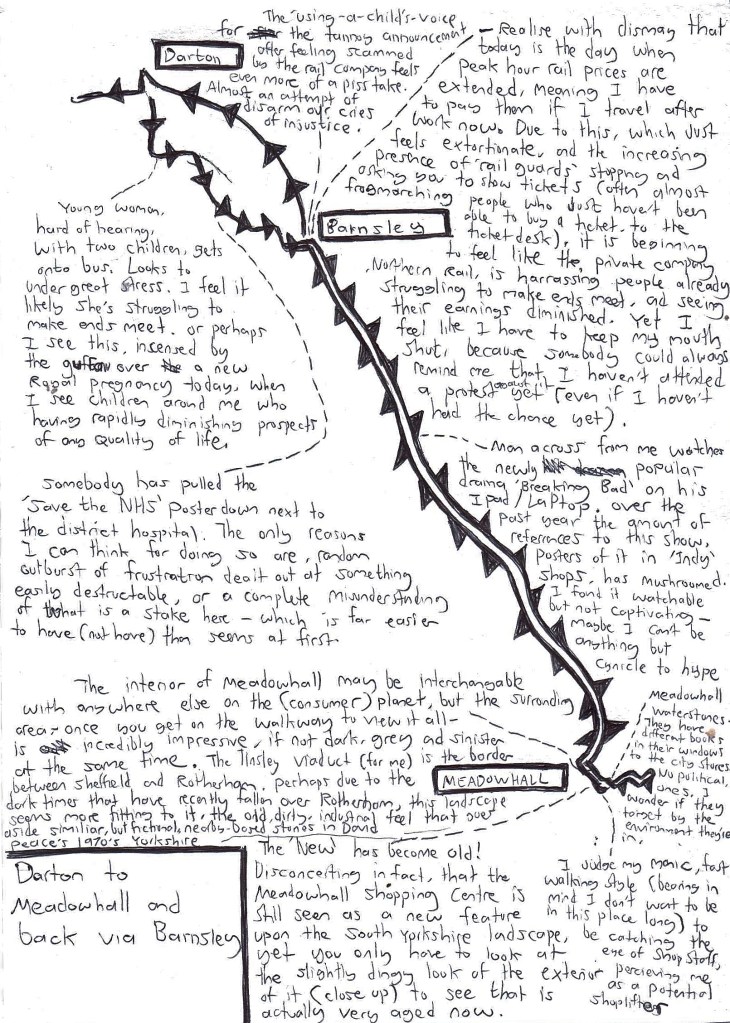 The 'using-a-child's-voice'
for the tannoy announcement
after feeling scammed
by the rail company feels
even more of a piss take.
Almost an attempt of
disarm our cries
of injustice.
Darton
- Realise with dismay that
today is the day when
peak hour rail prices are
extended, meaning I have
to pay them if I travel after
work now. Due to this, which just
feels extortinate, and the increasing
presence of 'rail guards' stopping and
asking you to show tickets (often almost
frogmarching people who just haven't been
able to buy a ticket, to the
ticket desk), it is beginning
to feel like the, private company
, Northern Rail, is harrassing people already
struggling to make ends meet, and seeing
their earnings diminished. Yet I
feel like I have to keep my mouth
shut, because somebody could always
remind me that I haven't attended
a protest about it yet (even if I haven't
had the chance yet).
Barnsley
Young woman,
hard of hearing,
with two children, gets
onto bus. Looks to
under great stress. I feel it
likely she's struggling to
make ends meet. or perhaps
I see this, incensed by
the guffaw over a new
Royal pregnancy today, when
I see children around me who
having rapidly diminishing prospects
of any quality of life.
Somebody has pulled the
'Save the NHS' Poster down next to
the district hospital. The only reasons
I can think for doing so are, random
outburst of frustration dealt out at something
easily destructable, or a complete misunderstanding
of what is a stake here - which is far easier
to have (not have) than seems at first.
- Man across from me watches
the newly popular
drama 'Breaking Bad' on his
Ipad/Laptop. over the
past year the amount of
references to this show,
posters of it in 'Indy'
shops, has mushroomed.
I found it watchable
but not captivating -
maybe I can't be
anything but
cynicle to hype
The interior of Meadowhall may be interchangable
with anywhere else on the (consumer) planet, but the surronding
area - once you get on the walkway to view it all -
is incredibly impressive, if not dark, grey and sinister
at the same time. The Tinsley Viaduct (for me) is the border
between Sheffield and Rotherham. perhaps due to the
dark times that have recently fallen over Rotherham, this landscape
seems more fitting to it, the old, dirty, industrial feel that over
aside similiar, but fictional, nearby-based stories in David
Peace's 1970's Yorkshire
MEADOWHALL
Meadowhall
Waterstones.
They have
different books
in their windows
to the city stores.
No political
ones. I
wonder if they
target by the
environment they're
in,
Darton to
Meadowhall and
back via Barnsley
The 'New' has become old!
Disconcerting in fact, that the
Meadowhall Shopping Centre is
still seen as a new feature
upon the South Yorkshire landscape,
yet you only have to look at
the slightly dingy look of the exterior
of it (close up) to see that is
actually very aged now.
I judge my manic, fast
walking style (bearing in
mind I don't want to be
in this place long) to
be catching the
eye of Shop Staff,
percieving me
as a potential
shoplifter